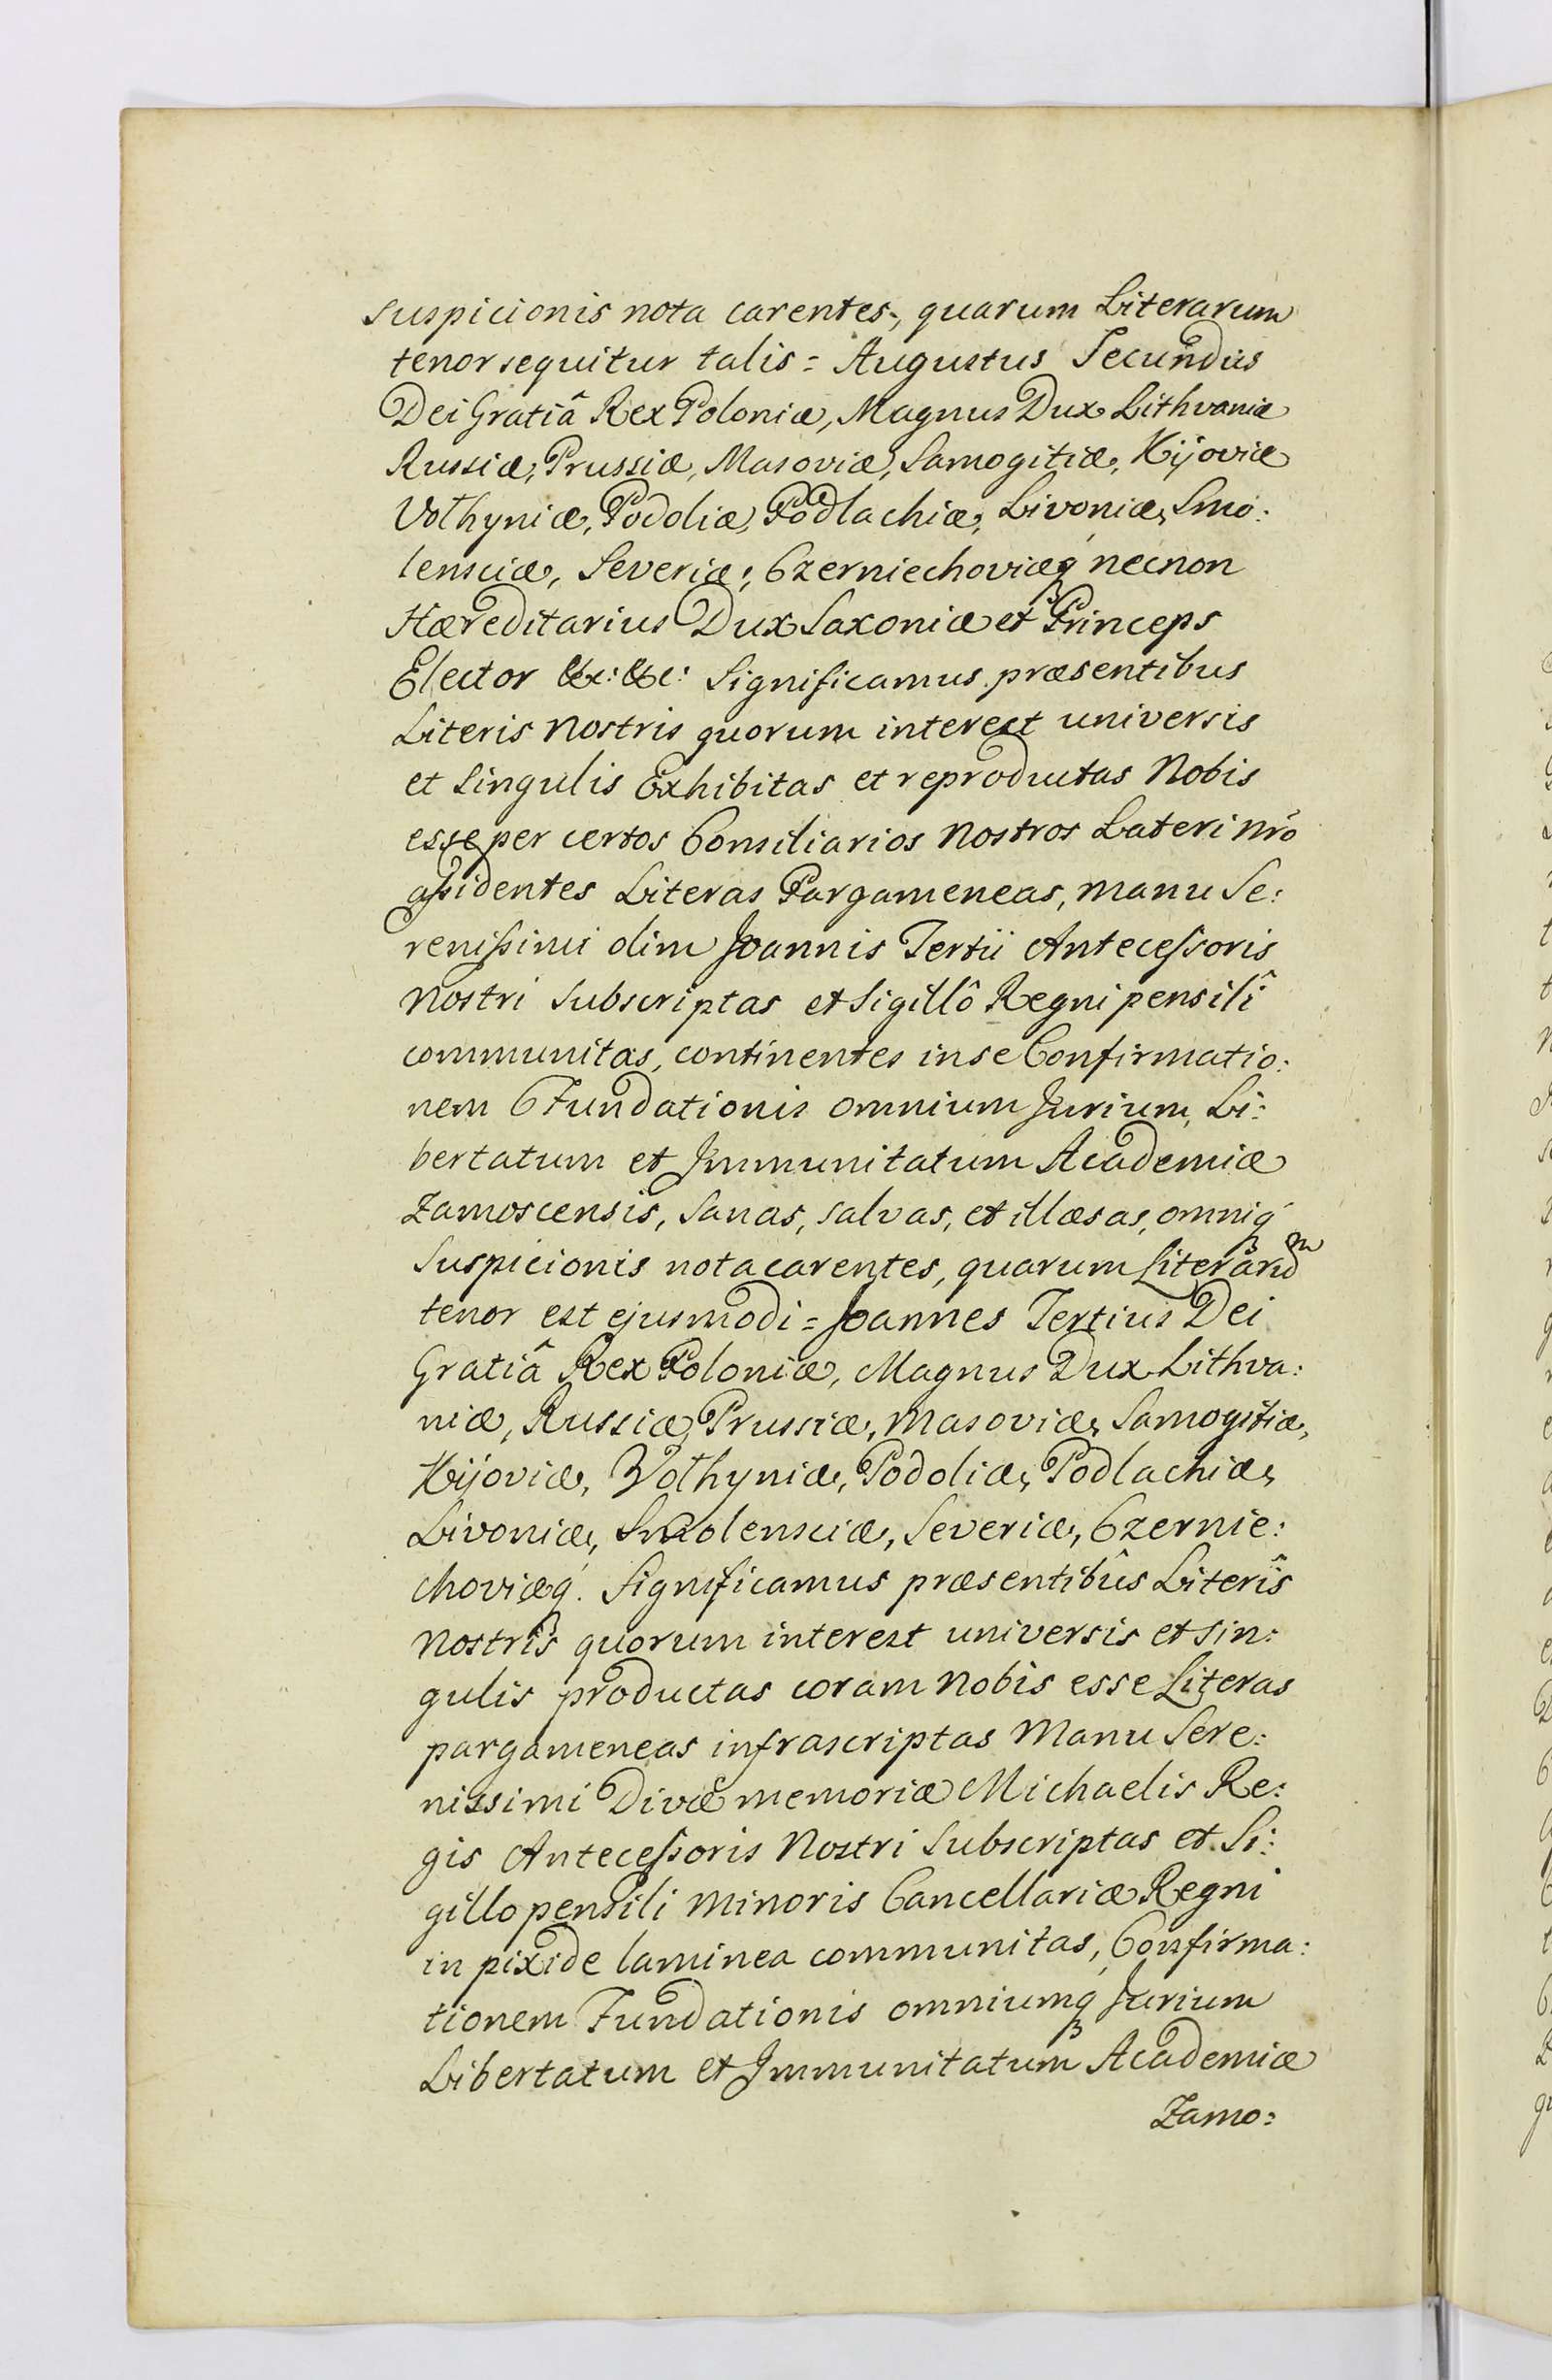 suspicionis nota carentes, quarum Literarum
tenor sequitur talis = Augustus Secundus
Dei Gratiâ Rex Poloniæ, Magnus Dux Lithvaniæ
Russiæ, Prussiæ, Masoviæ, Samogitiæ, Kijoviæ
Volhyniæ, Podoliæ, Podlachiæ, Livoniæ, Smo:
lensciæ, Severiæ, Czerniechoviæq́ necnon
Hæreditarius Dux Saxoniæ et Princeps
Elector &c: &c: Significamus præsentibus
Literis Nostris quorum interest universis
et singulis Exhibitas et reproductas Nobis
esse per certos Consiliarios Nostros Lateri Nr̃o
assidentes Literas Pargameneas, manu Se:
renissimi olim Joannis Tertii Antecessoris
Nostri subscriptas et Sigillô Regni pensilî
communitas, continentes in se Confirmatio:
nem Fundationis omnium Jurium, Li:
bertatum et Immunitatum Academiæ
Zamoscensis, sanas, salvas, et illæsas, omniq́
Suspicionis nota carentes, quarum Literarũ
tenor est ejusmodi = Joannes Tertius Dei
Gratiâ Rex Poloniæ, Magnus Dux Lithva:
niæ, Russiæ, Prussiæ, Masoviæ, Samogitiæ,
Kijoviæ, Volhyniæ, Podoliæ, Podlachiæ,
Livoniæ, Smolensciæ, Severiæ, Czernie:
choviæq́. Significamus præsentibûs Literîs
Nostris quorum interest universis et sin:
gulis productas coram Nobis esse Literas
pargameneas infrascriptas Manu Sere:
nissimi Divæ memoriæ Michaelis Re:
gis Antecessoris Nostri Subscriptas et Si:
gillo pensili Minoris Cancellariæ Regni
in pixide laminea communitas, Confirma:
tionem Fundationis omniumq́ Jurium
Libertatum et Immunitatum Academiæ
Zamo: